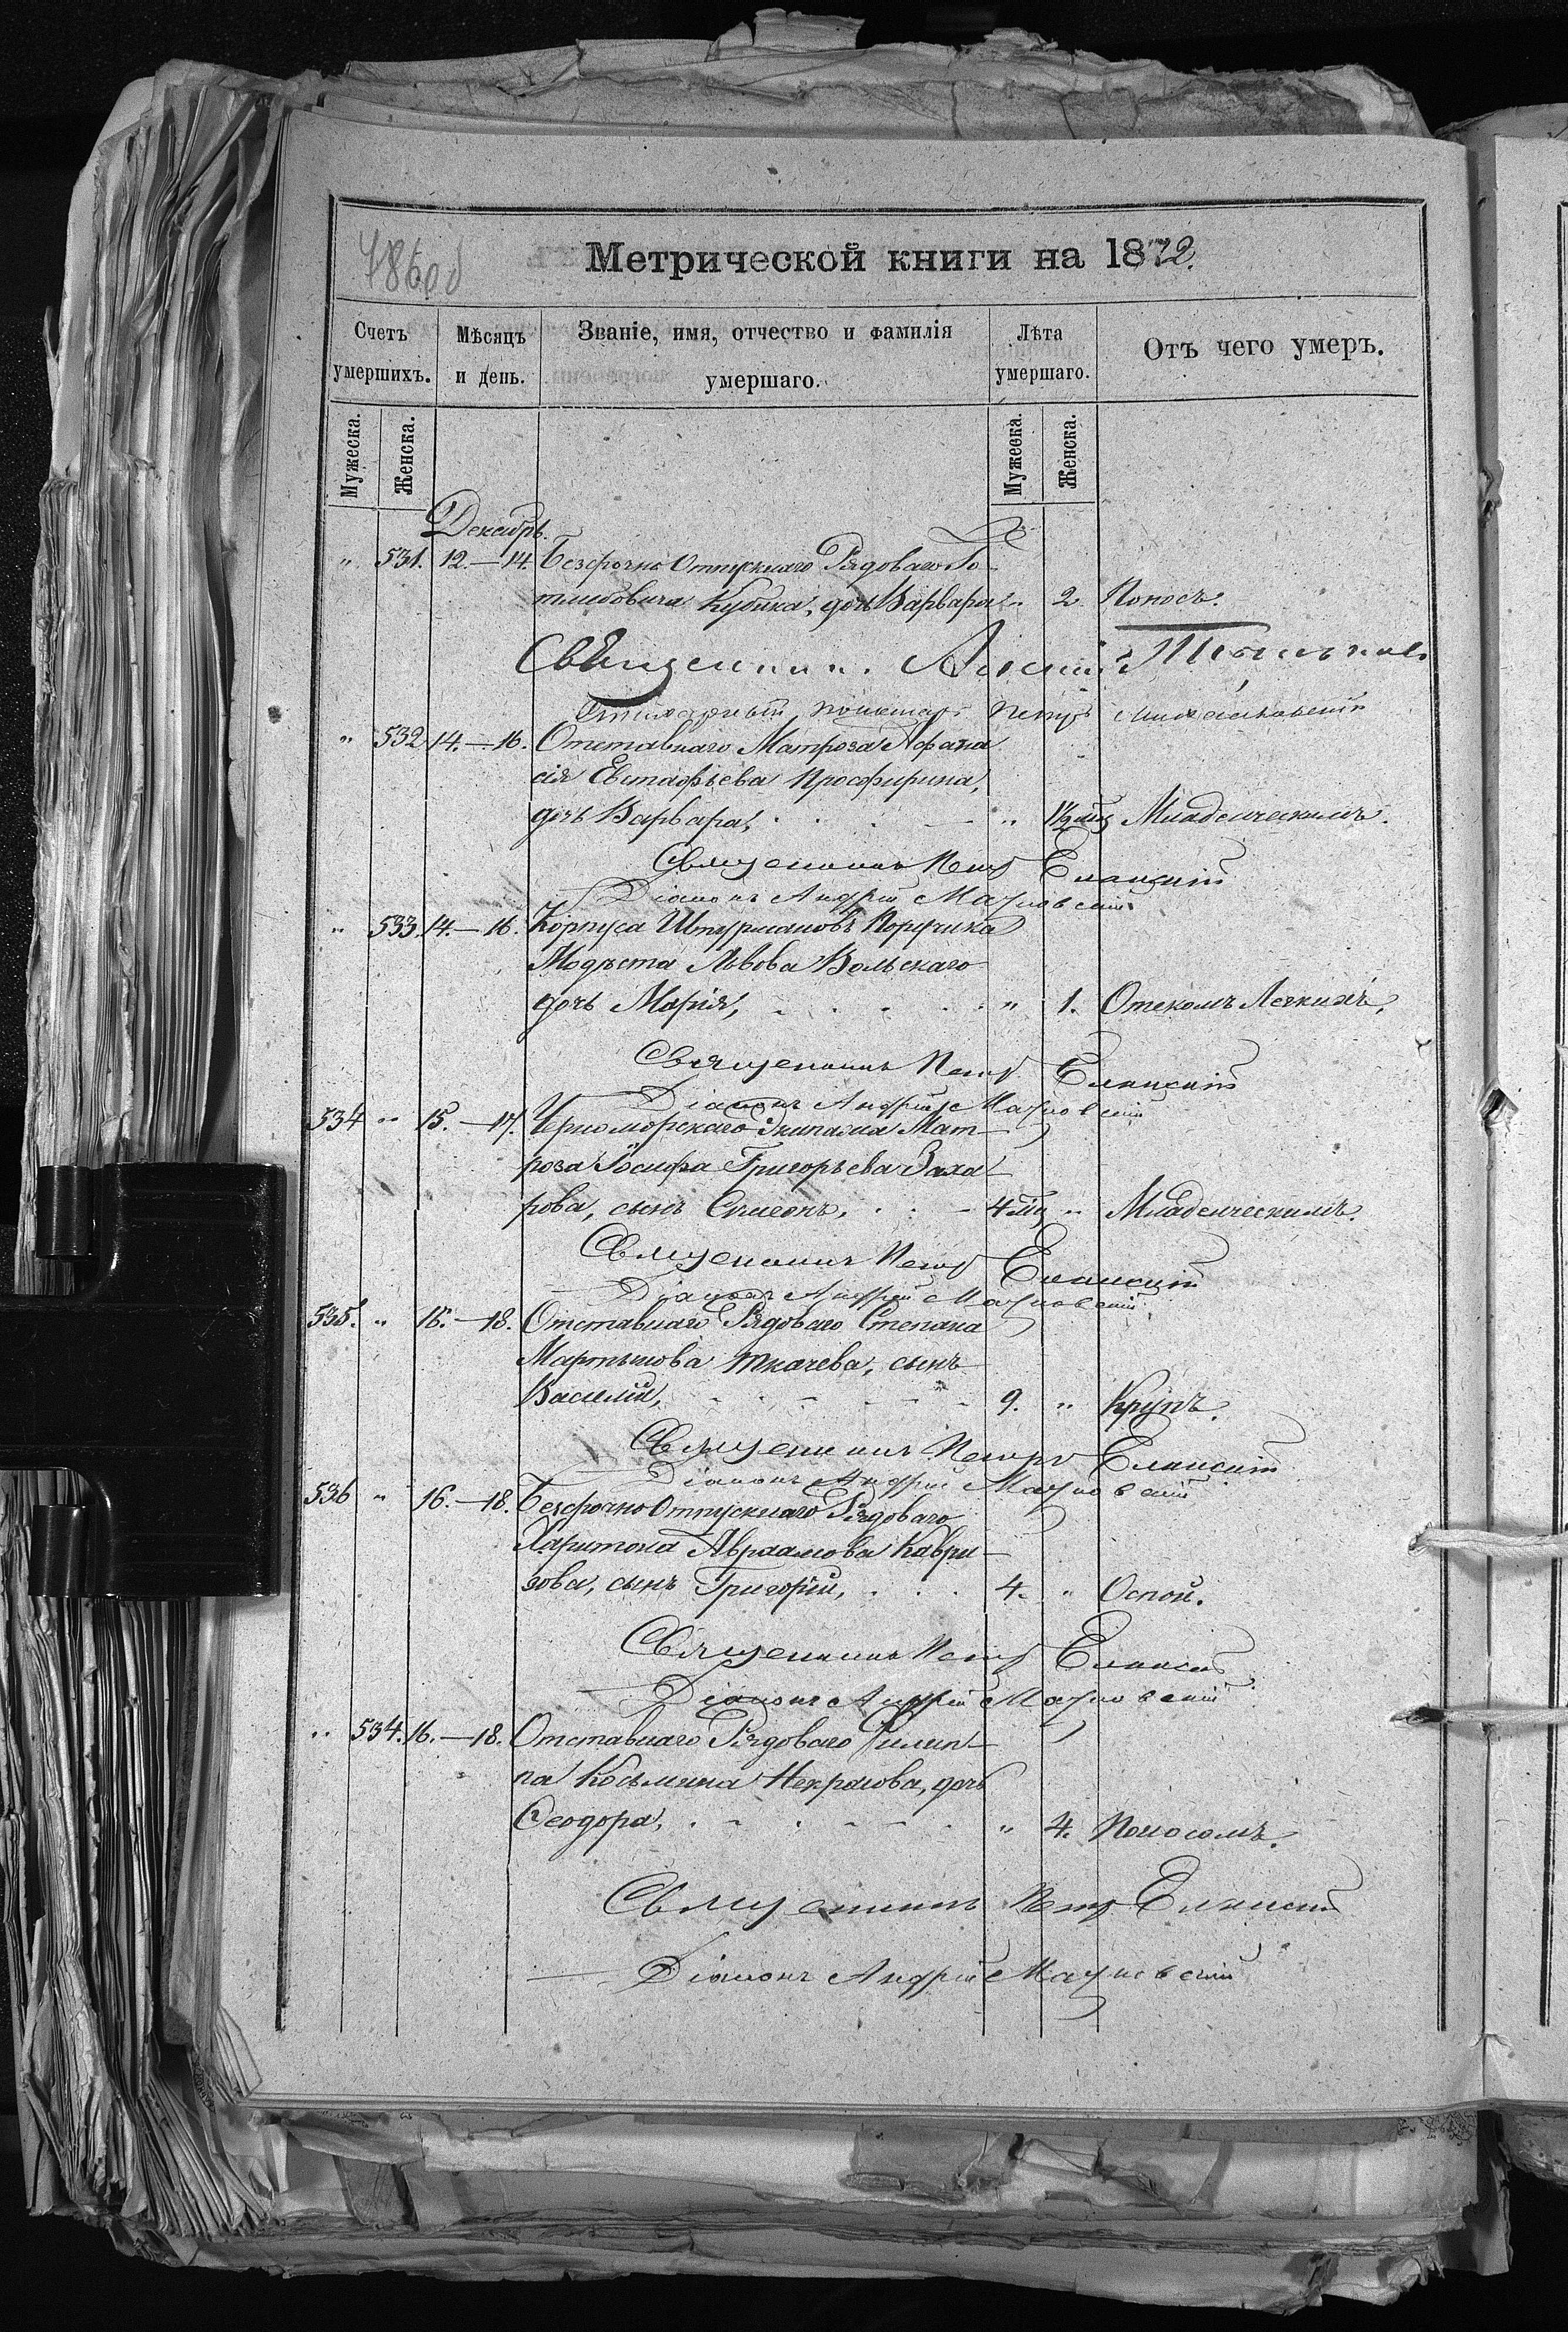 Метрической книги на 1872.
Счетъ умершихъ.
Мѣсяцъ и день.
Званіе, имя, отчество и фамилія умершаго.
Лѣта умершаго.
Отъ чего умеръ.
Мужеска.
Женска.
Мужеска.
Женска.
Декабрь.
" 531. 12.—14. Безсрочно Отпускнаго Рядоваго Го-
тлибовича Кубика, дочь Варвара " 2 Поносъ.
Священник
Петръ
" 532 14.—16. Отставнаго Матроза Афана
сія Евстафьева Просфирина,
дочь Варвара, " 1½ мц Младенческимъ.
Священникъ Петръ Еланскій
Діаконъ Андрей
" 533. 14.—16. Корпуса Штурмановъ Поручика
Модеста Львова Вольскаго
дочь Марія, " 1. Отекомъ Легкихъ,
Священникъ Петръ Еланскій
Діаконъ Андрей
534 " 15.—17. Черноморскаго Экипажа Мат-
роза Іосифа Григорьева Заха-
рова, сынъ Симеонъ, 4 мц " Младенческимъ.
Священникъ Петръ Еланскій
Діаконъ Андрей
535. " 16.—18. Отставнаго Рядоваго Степана
Мартынова Ткачева, сынъ
Василій, 9. " Крупъ.
Священникъ Петръ Еланскій
Діаконъ Андрей
536 " 16.—18. Безсрочно Отпускнаго Рядоваго
Харитона Авраамова Каври-
зова, сынъ Григорій, 4. " Оспой.
Священникъ Петръ Еланскій
Діаконъ Андрей
" 534. 16.—18. Отставнаго Рядоваго Филип-
па Косьмина Некрасова, дочь
Ѳеодора, " 4. Поносомъ.
Священникъ Петръ Еланскій
Діаконъ Андрей